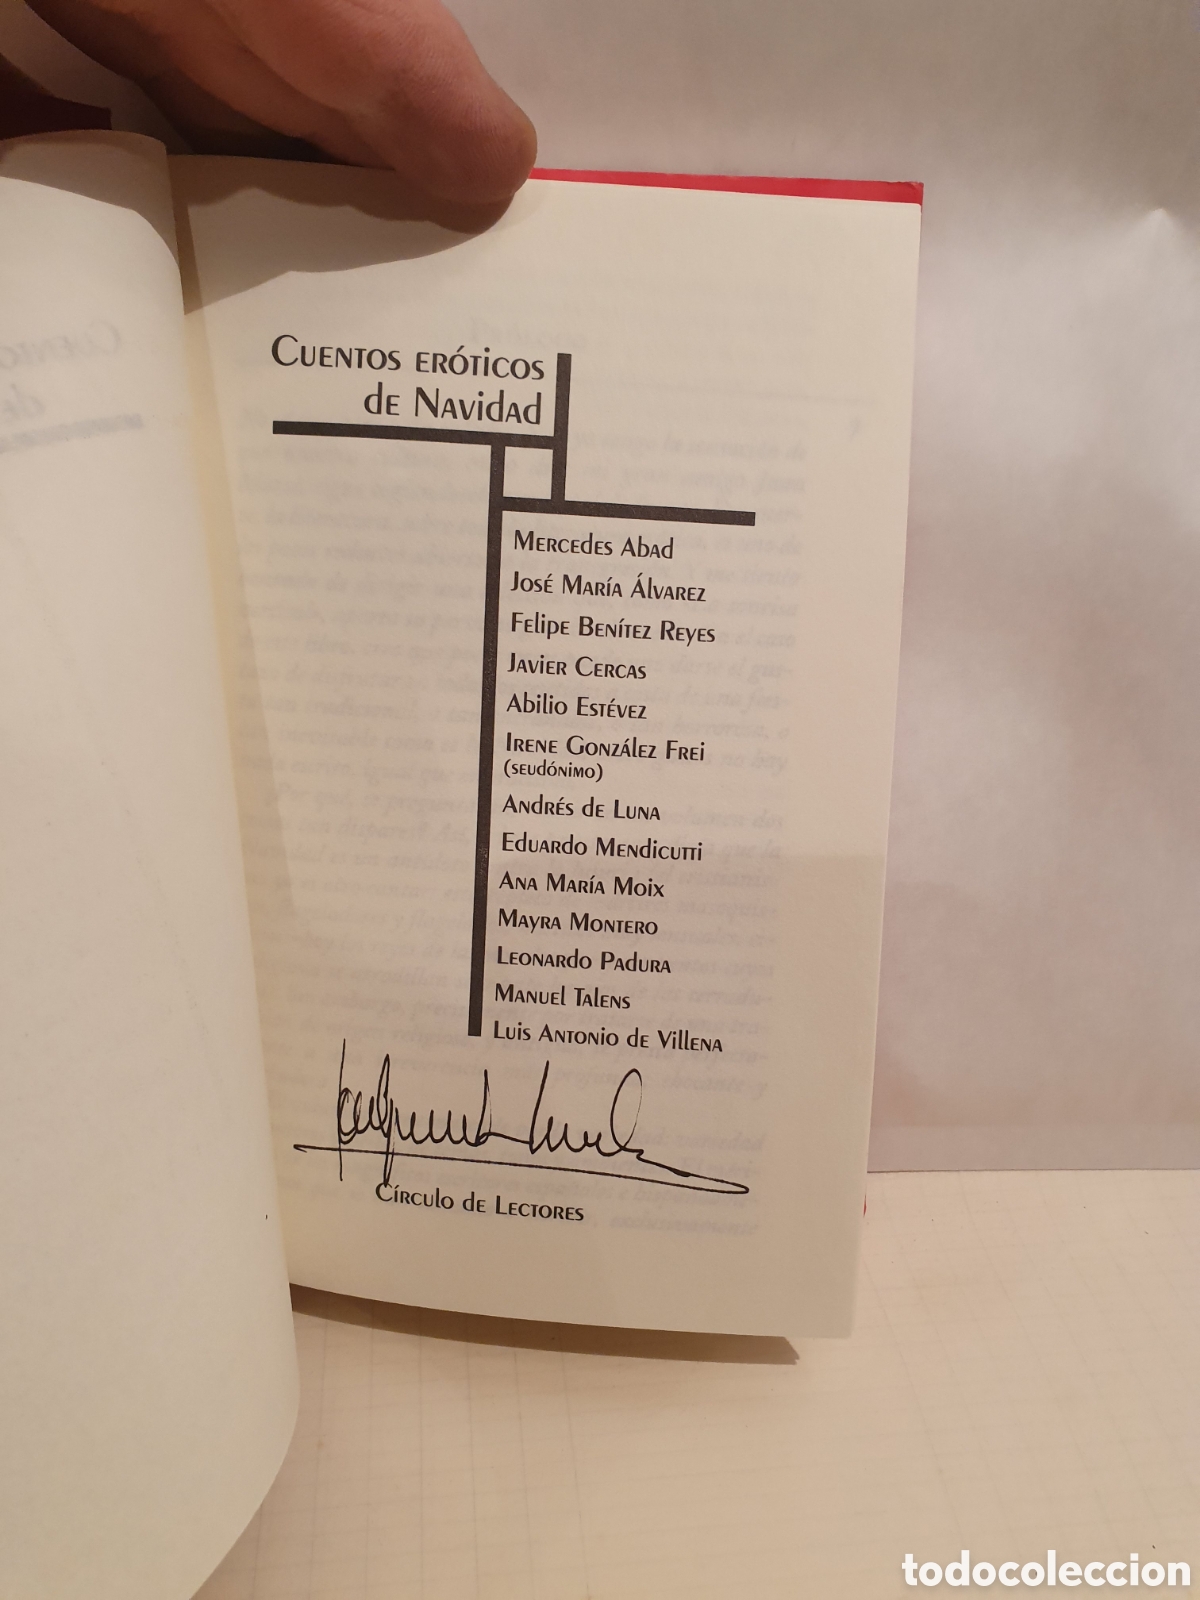 CUENTOS ERÓTICOS
DE NAVIDAD
MERCEDES ABAD
JOSÉ MARÍA ÁLVAREZ
FELIPE BENÍTEZ REYES
JAVIER CERCAS
ABILIO ESTÉVEZ
IRENE GONZÁLEZ FREI
(SEUDÓNIMO)
ANDRÉS DE LUNA
EDUARDO MENDICUTTI
ANA MARÍA MOIX
MAYRA MONTERO
LEONARDO PADURA
MANUEL TALENS
LUIS ANTONIO DE VILLENA
CÍRCULO DE LECTORES
todocoleccion